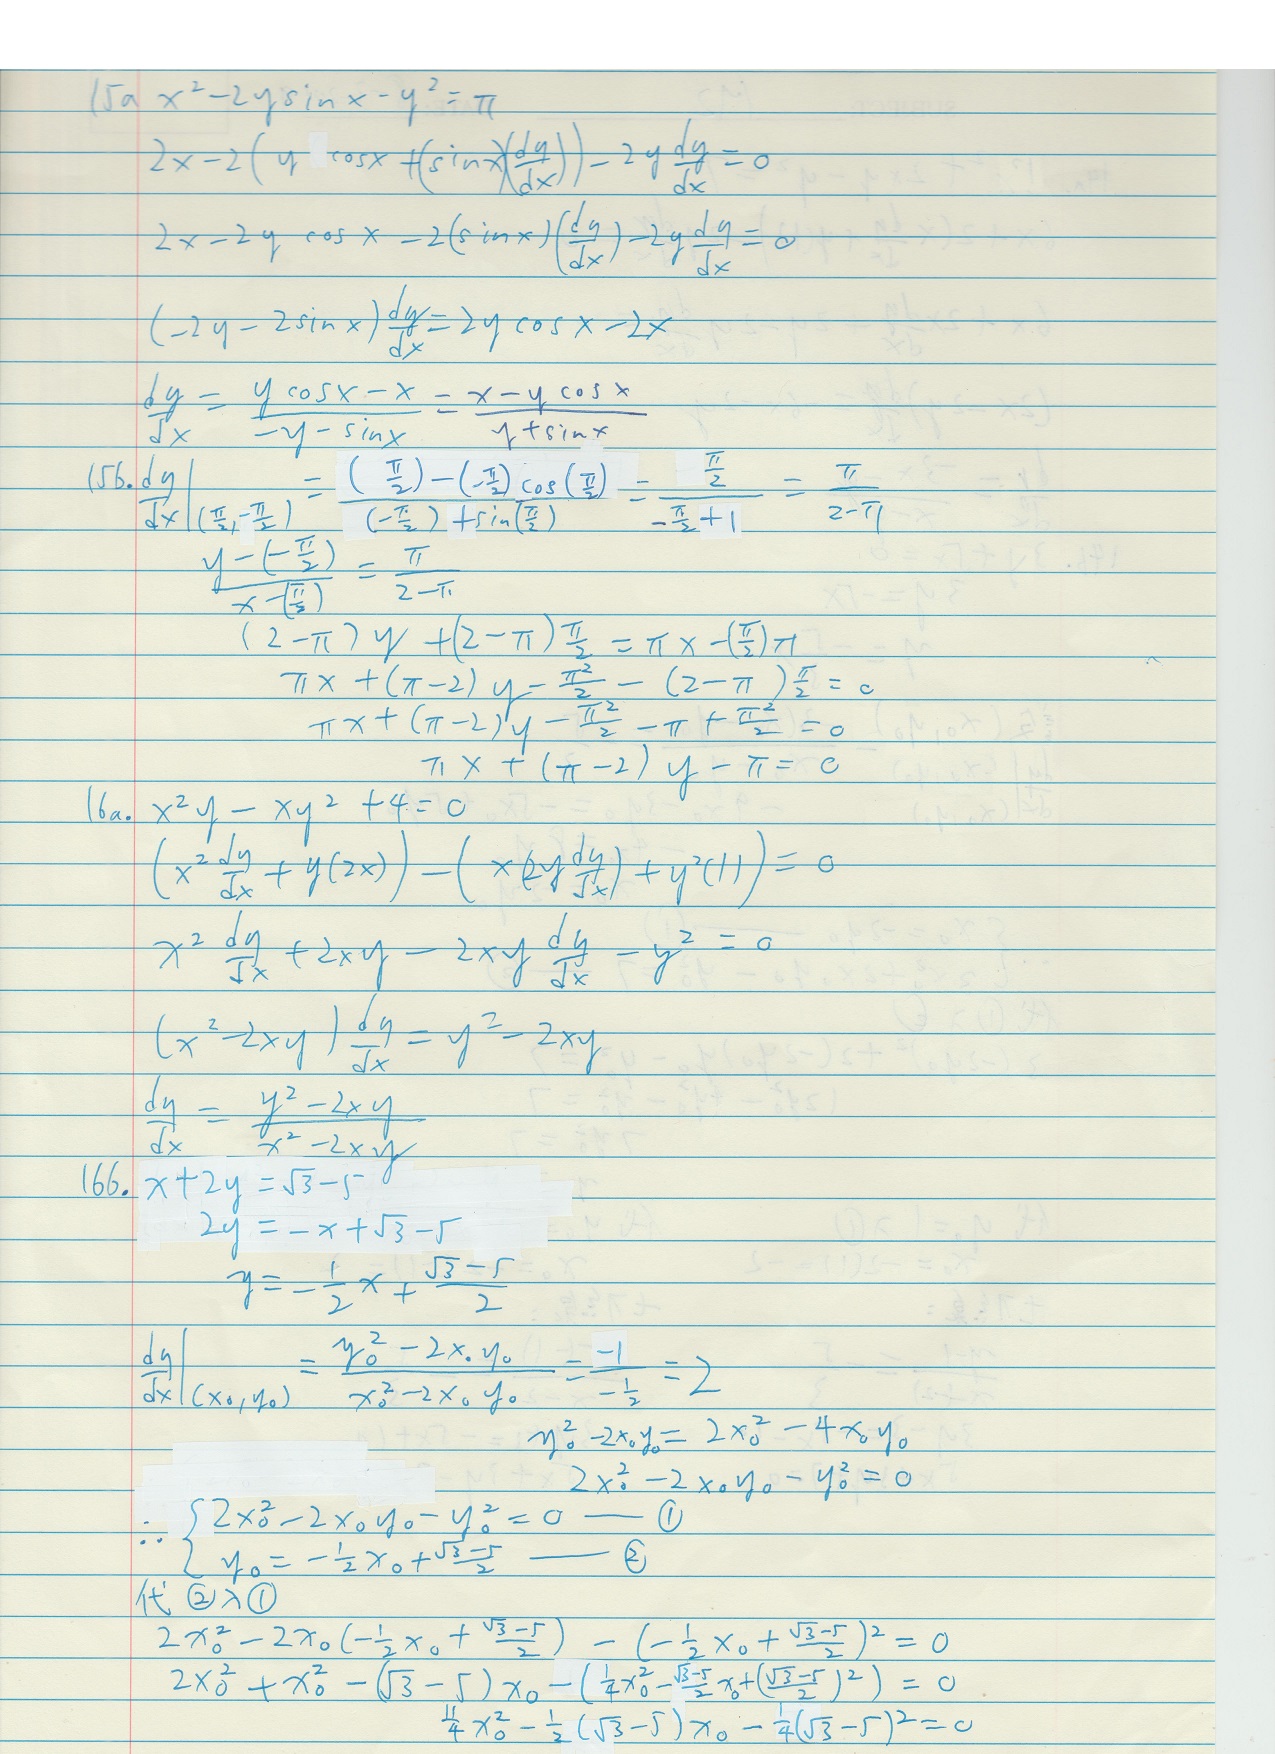 15a x²-2ysinx-y²=π
2x-2(y cosx+(sinx)(dy/dx))-2y dy/dx=0
2x-2y cosx-2(sinx)(dy/dx)-2y dy/dx=0
(-2y-2sinx)dy/dx=2ycosx-2x
dy/dx = (ycosx-x)/(-y-sinx) = (x-ycosx)/(y+sinx)
15b. dy/dx|(π/2,-π/2) = ((π/2)-(-π/2)cos(π/2))/((-π/2)+sin(π/2)) = (π/2)/(-π/2+1) = π/(2-π)
(y-(-π/2))/(x-(π/2)) = π/(2-π)
(2-π)y+(2-π)π/2=πx-(π/2)π
πx+(π-2)y-π²/2-(2-π)π/2=0
πx+(π-2)y-π²/2-π+π²/2=0
πx+(π-2)y-π=0
16a. x²y-xy²+4=0
(x² dy/dx+y(2x))-(x(2y dy/dx)+y²(1))=0
x² dy/dx+2xy-2xy dy/dx-y²=0
(x²-2xy)dy/dx=y²-2xy
dy/dx = (y²-2xy)/(x²-2xy)
16b. x+2y=√3-5
2y=-x+√3-5
y=-1/2x+(√3-5)/2
dy/dx|(x₀,y₀) = (y₀²-2x₀y₀)/(x₀²-2x₀y₀) = -1/(-1/2) = 2
y₀²-2x₀y₀=2x₀²-4x₀y₀
2x₀²-2x₀y₀-y₀²=0
∴ {2x₀²-2x₀y₀-y₀²=0 — ①
y₀=-1/2x₀+(√3-5)/2 — ②
代②入①
2x₀²-2x₀(-1/2x₀+(√3-5)/2)-(-1/2x₀+(√3-5)/2)²=0
2x₀²+x₀²-(√3-5)x₀-(1/4x₀²-(√3-5)/2x₀+((√3-5)/2)²)=0
11/4x₀²-1/2(√3-5)x₀-1/4(√3-5)²=0